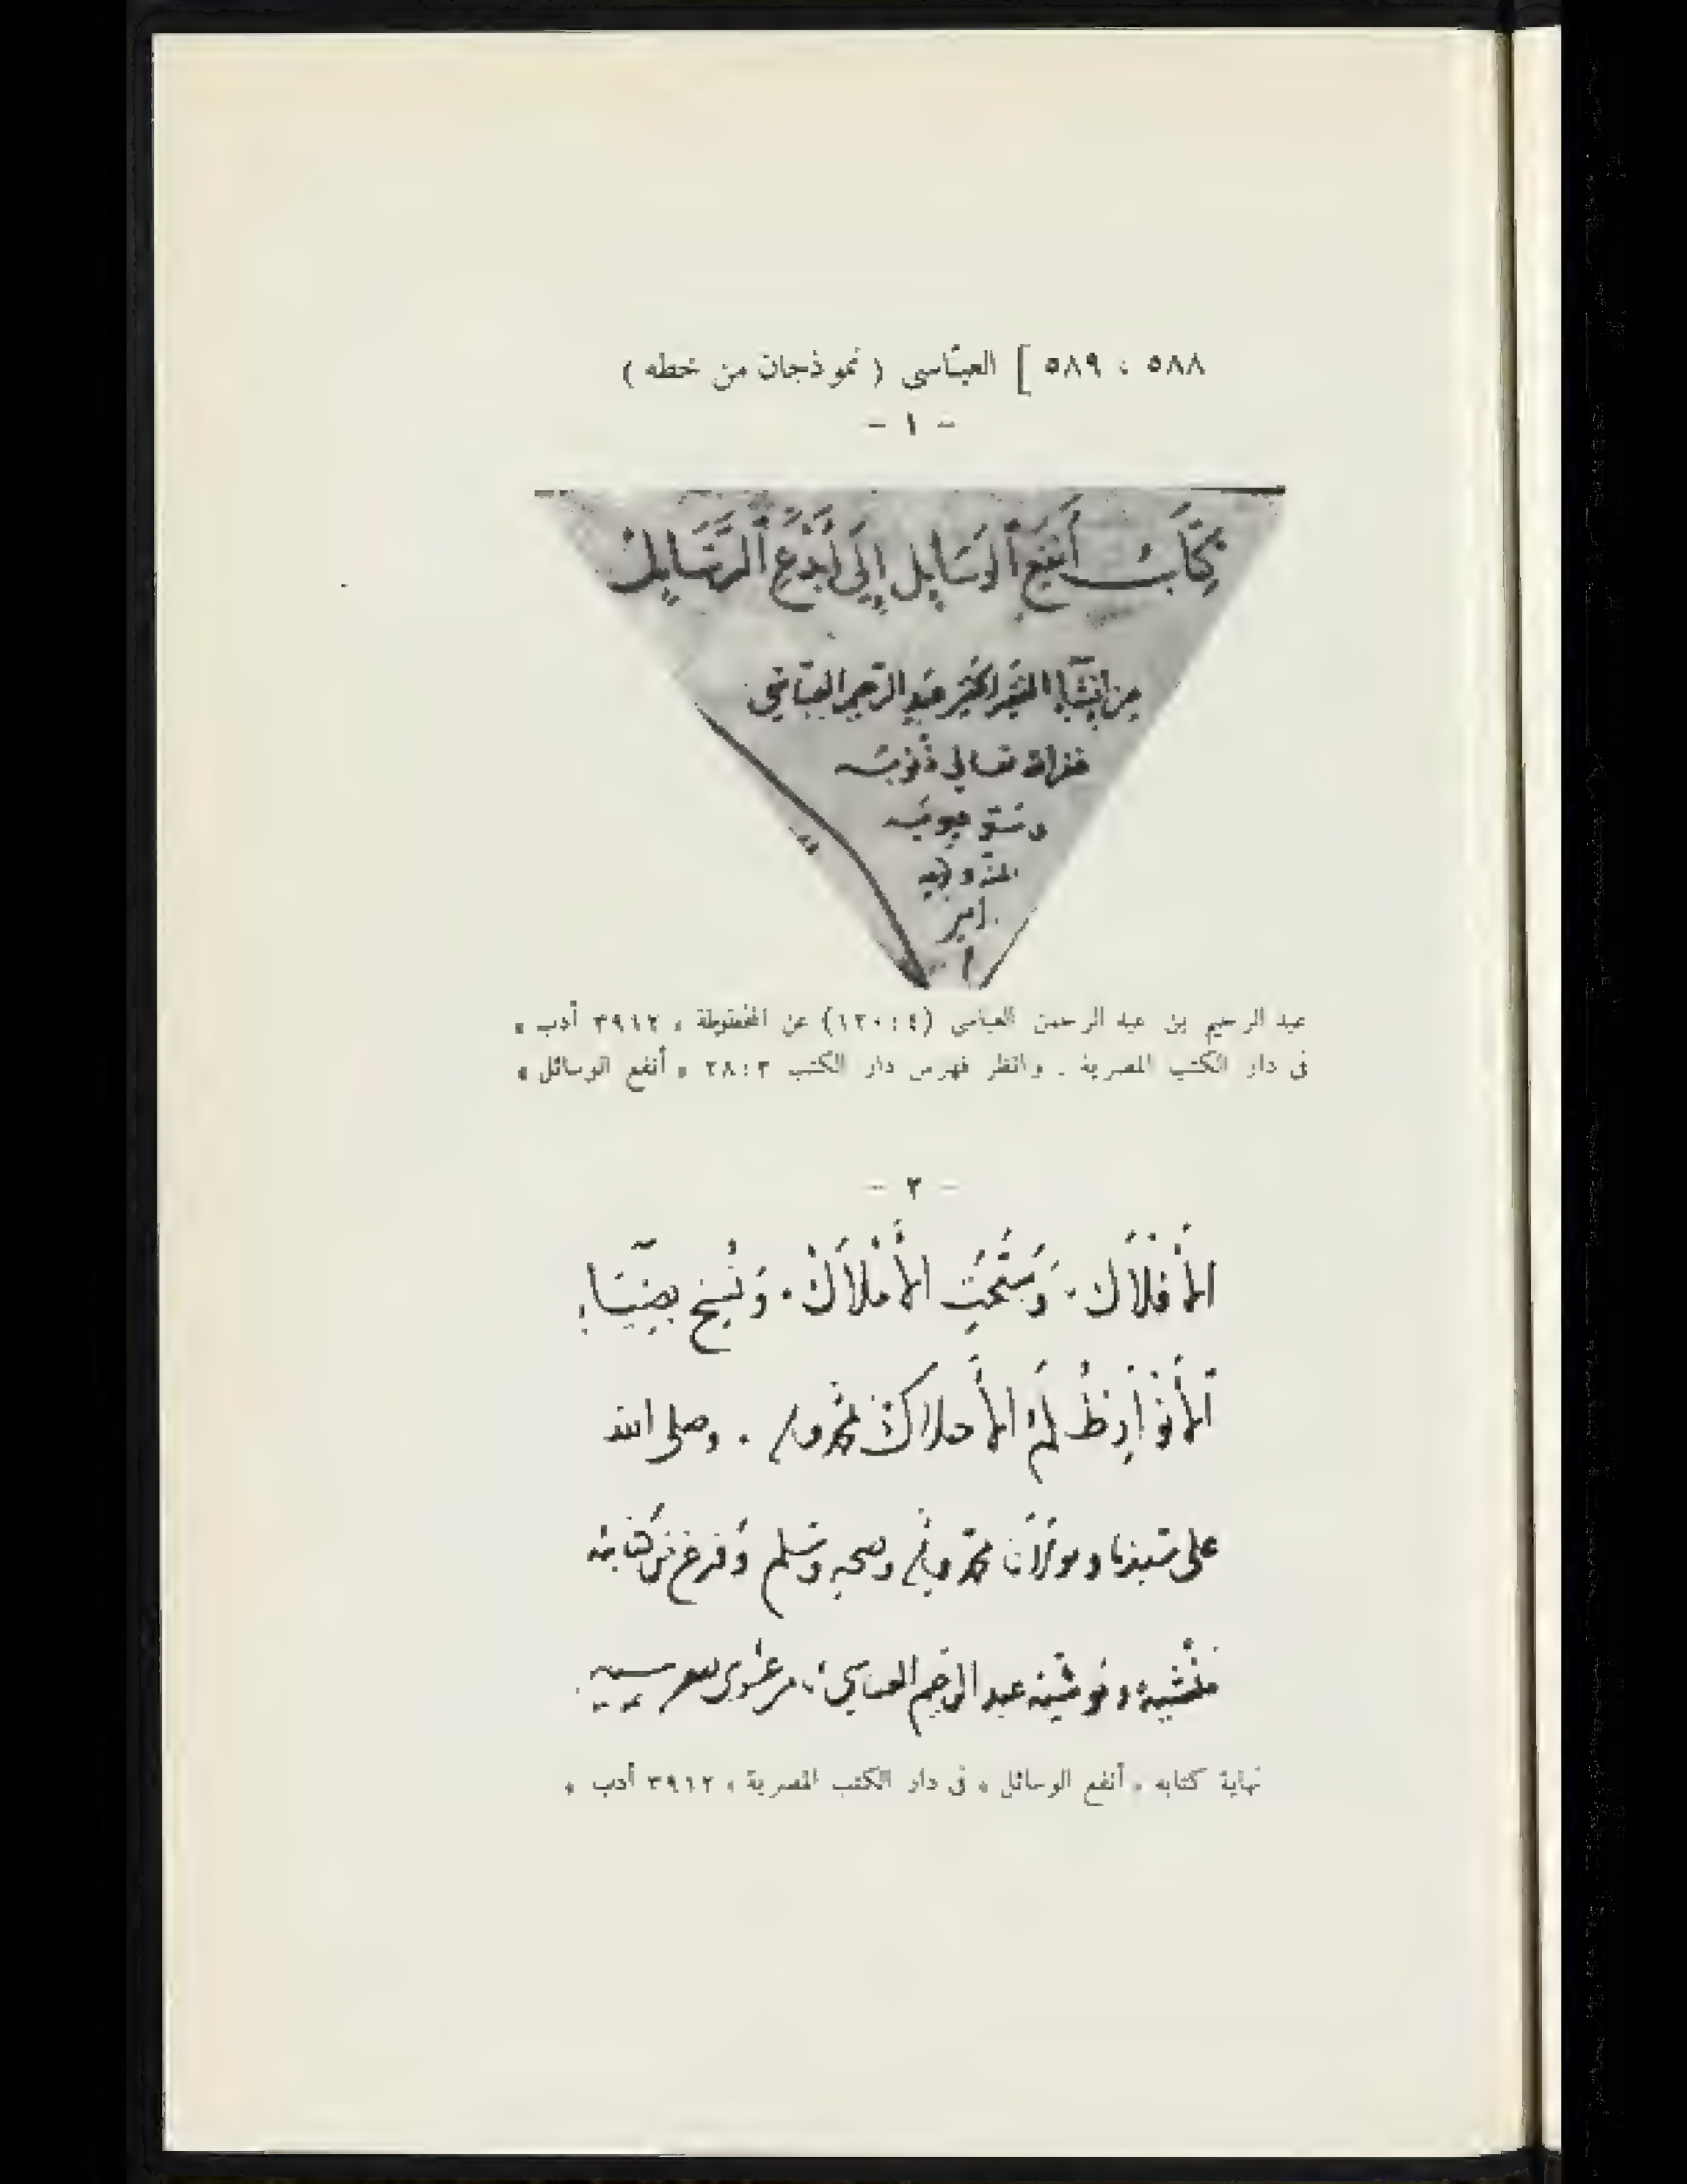 ٥٨٨ ، ٥٨٩ ] العبّاسي ( نموذجان من خطه )
- ١ -
كِتَابُ أَنفَعِ الوَسَايِلِ إِلَى أَبْدَعِ الرَّسَايِلِ
من إنشاء الفقير الحقير عبد الرحيم العباسي
غفر الله تعالى ذنوبه
وستر عيوبه
بمنه وكرمه
امين
م
عبد الرحيم بن عبد الرحمن العباسي (٤ : ١٢٠) عن المخطوطة « ٣٩١٢ أدب »
في دار الكتب المصرية . وانظر فهرس دار الكتب ٣ : ٢٨ « أنفع الوسائل »
- ٢ -
الأَفْلَاك . وَسَبَّحَتِ الأَمْلَاكُ . وَنُسِخَ بِضِيَاءِ
الأَنْوَارِ ظُلَمُ الأَحلاك بمحمد وآله . وصلى الله
على سيدنا ومولانا محمد وآله وصحبه وسلم وفرغ من كتابته
منشيه وموشيه عبد الرحيم العباسي
نهاية كتابه « أنفع الوسائل » في دار الكتب المصرية « ٣٩١٢ أدب »